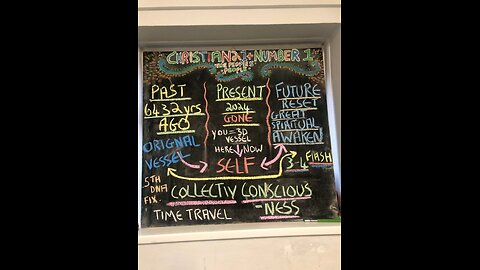 CHRISTIANZ + NUMBER 1
THE PEOPLE'S
PEOPLE
PAST
6432 yrs
AGO
ORIGNAL
VESSEL
5TH DNA
FIX.
PRESENT
2024
GONE
YOU = 3D
VESSEL
HERE NOW
SELF
FUTURE
RESET
GREAT
SPIRITUAL
AWAKEN
3-4 FLASH
COLLECTIV CONSCIOUS
-NESS
TIME TRAVEL